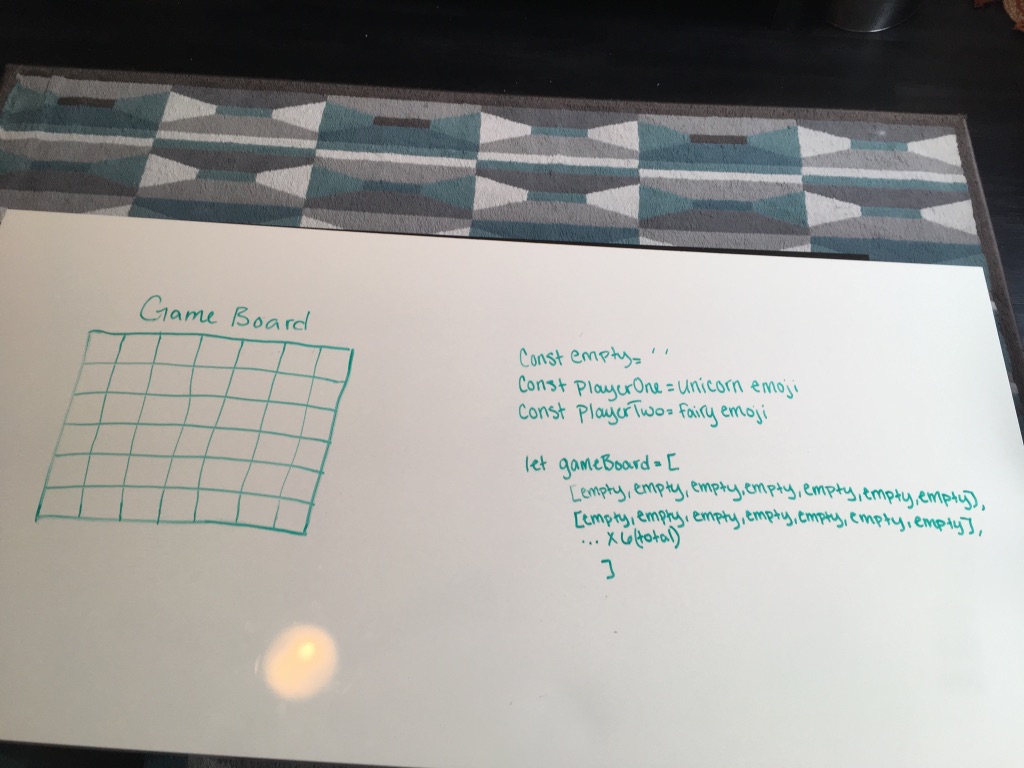 Game Board
Const empty= ' '
Const playerOne = unicorn emoji
Const playerTwo = fairy emoji
let gameBoard = [
[empty, empty, empty, empty, empty, empty, empty],
[empty, empty, empty, empty, empty, empty, empty],
... x6 (total)
]